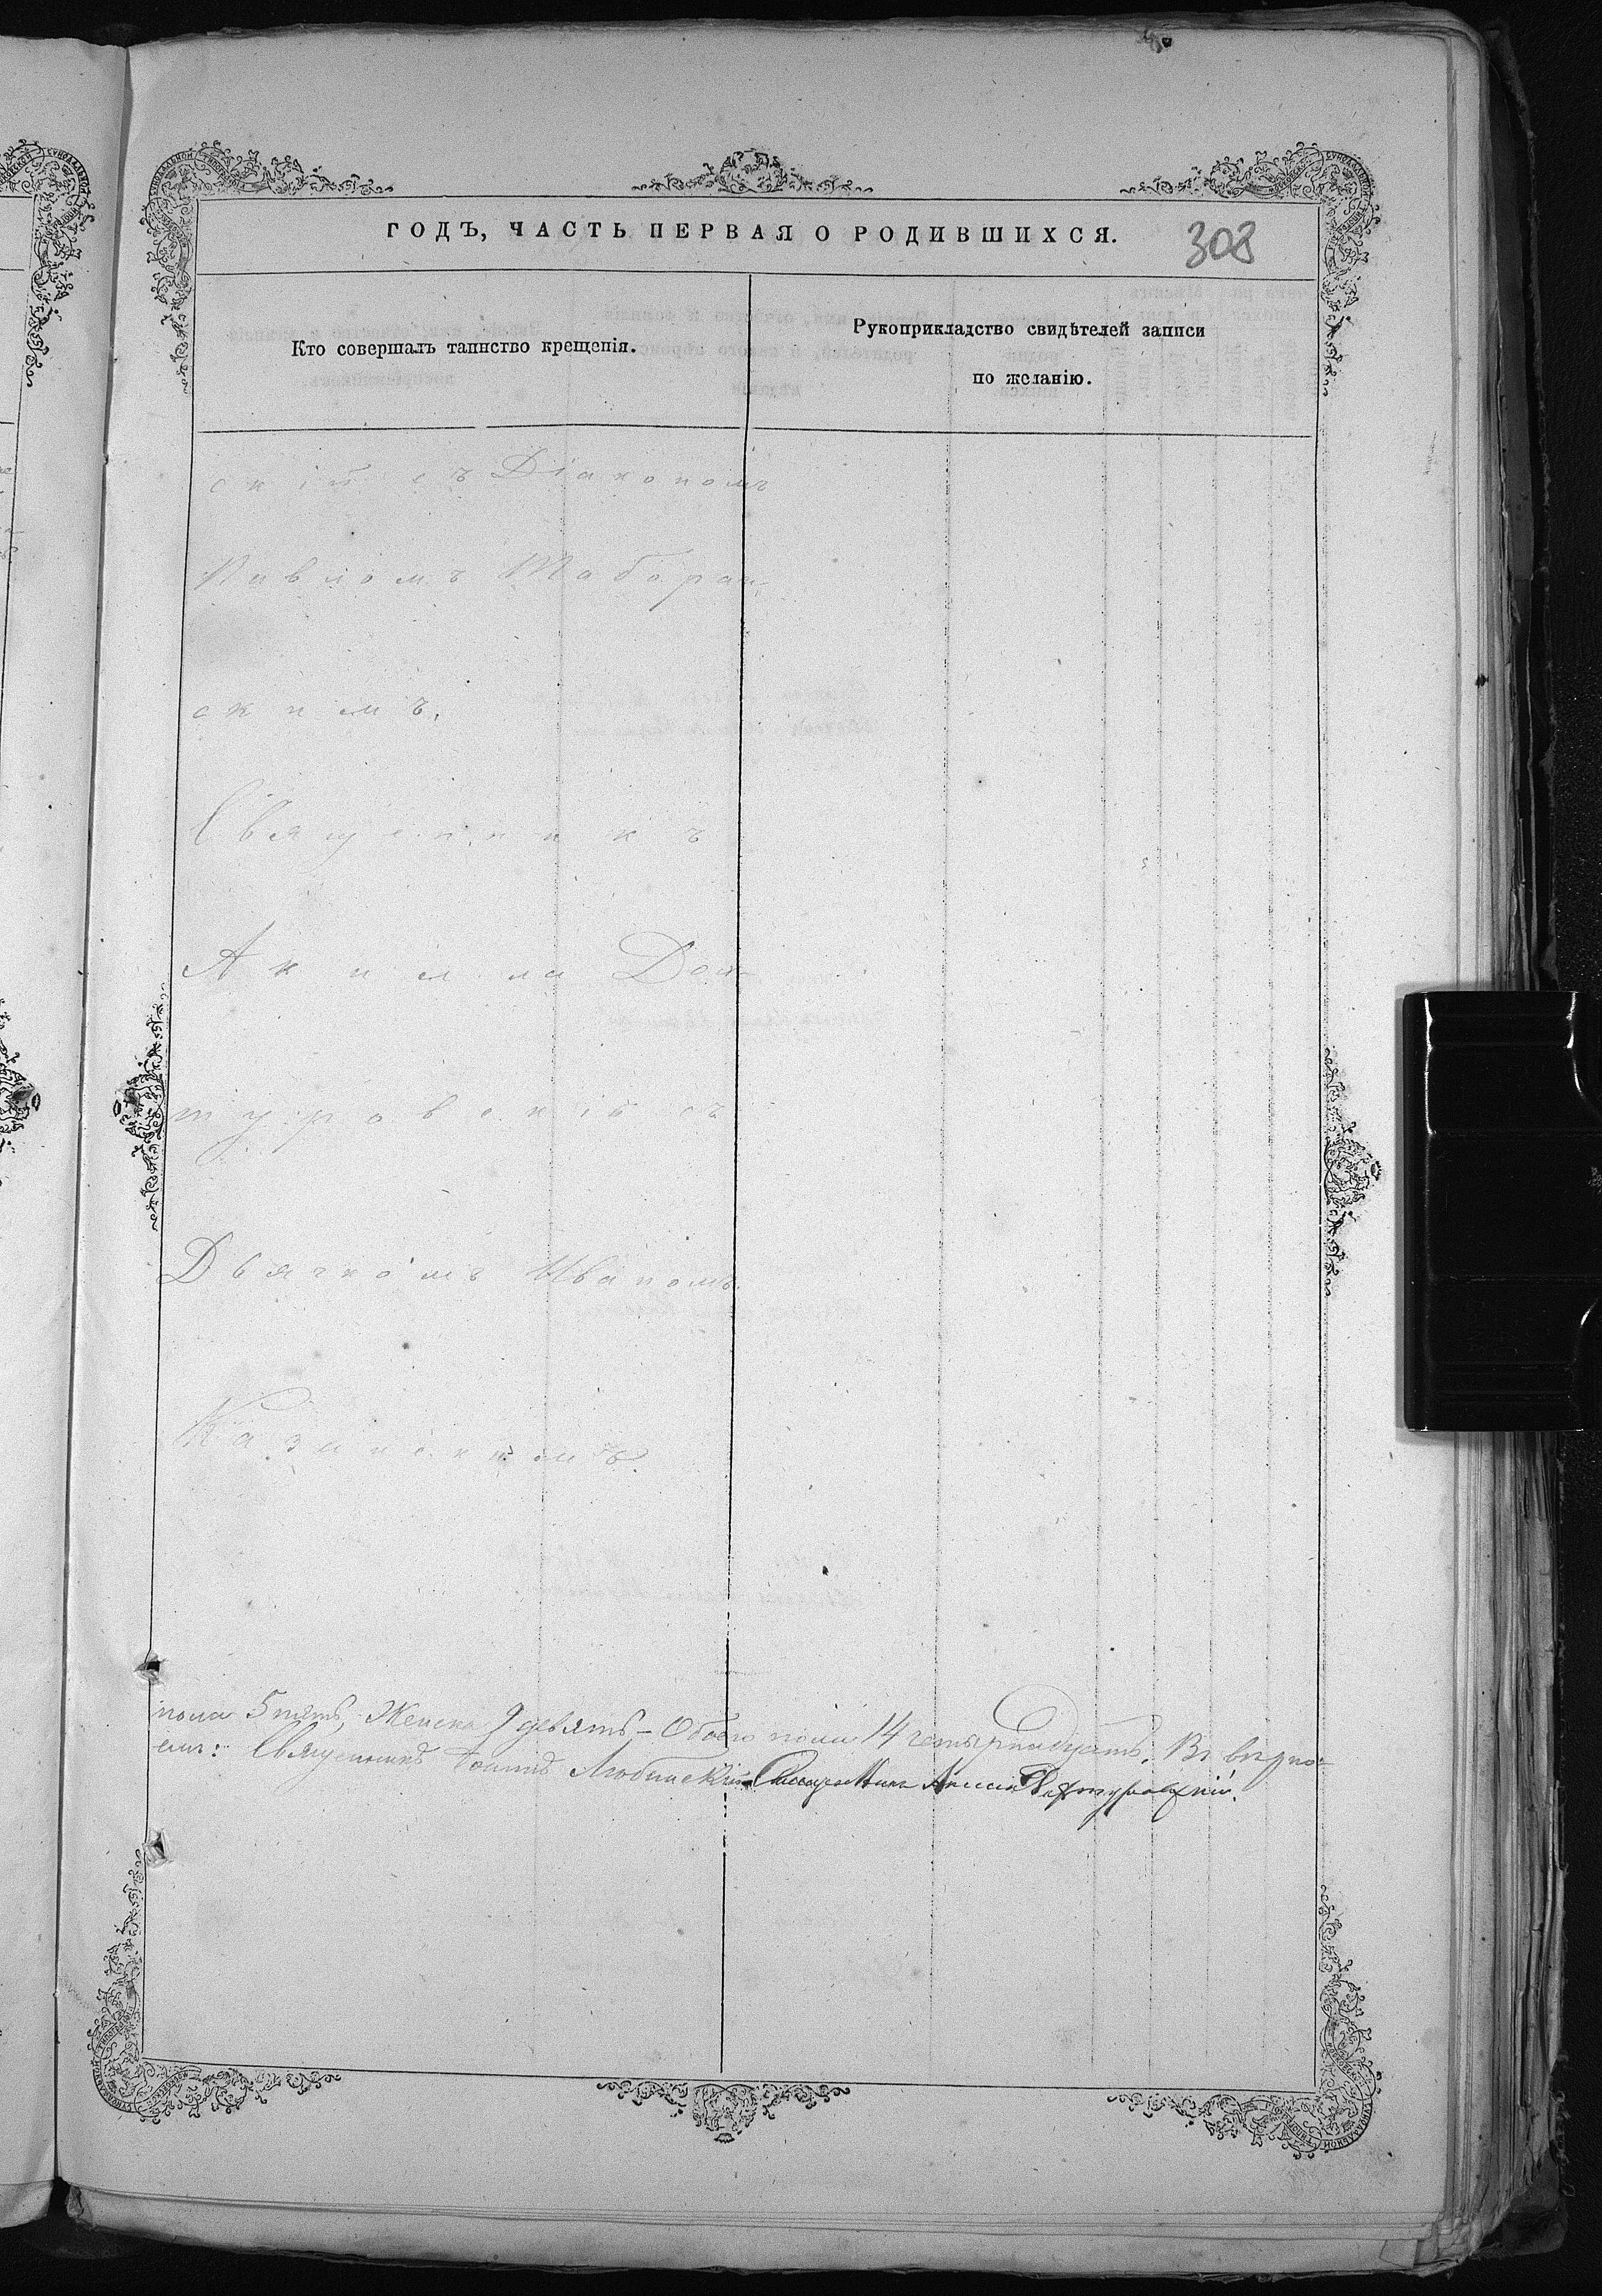 ГОДЪ, ЧАСТЬ ПЕРВАЯ О РОДИВШИХСЯ.
308
Кто совершалъ таинство крещенія.
Рукоприкладство свидѣтелей записи
по желанію.
скій съ Діакономъ
Павломъ Таборан
скимъ.
Священникъ
Акила Дом
туровскій съ
Дьячкомъ Иваномъ
Казинскимъ.
пола 5 пять, Женска 9 девять - Обоего пола 14 четырнадцать. Въ вѣрно-
Священникъ Іоаннъ Любинскій